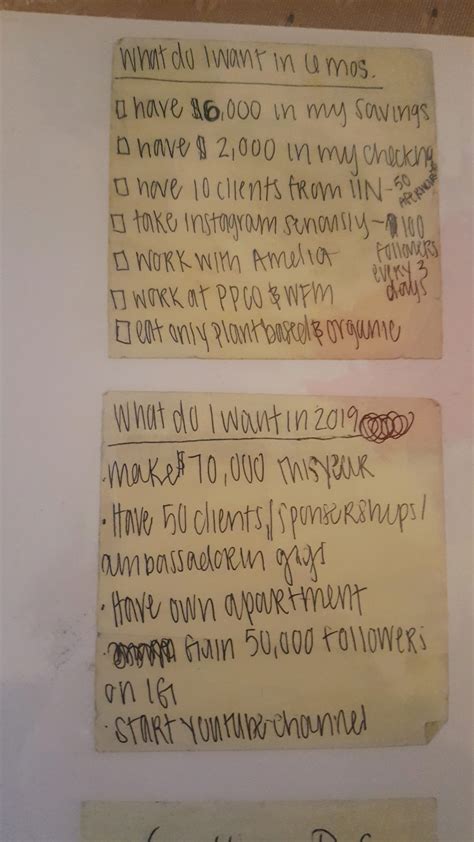 What do I want in 6 mos.
have $6,000 in my savings
have $2,000 in my checking
have 10 clients from IIN - 50
take instagram seriously - 100
followers
every 3
days
work with Amelia
work at PPCO & WFM
eat only plantbased & organic
What do I want in 2019
· make $70,000 this year
· Have 50 clients/sponserships/
ambassadorin gigs
· Have own apartment
· Gain 50,000 followers
on IG
· start youtube channel